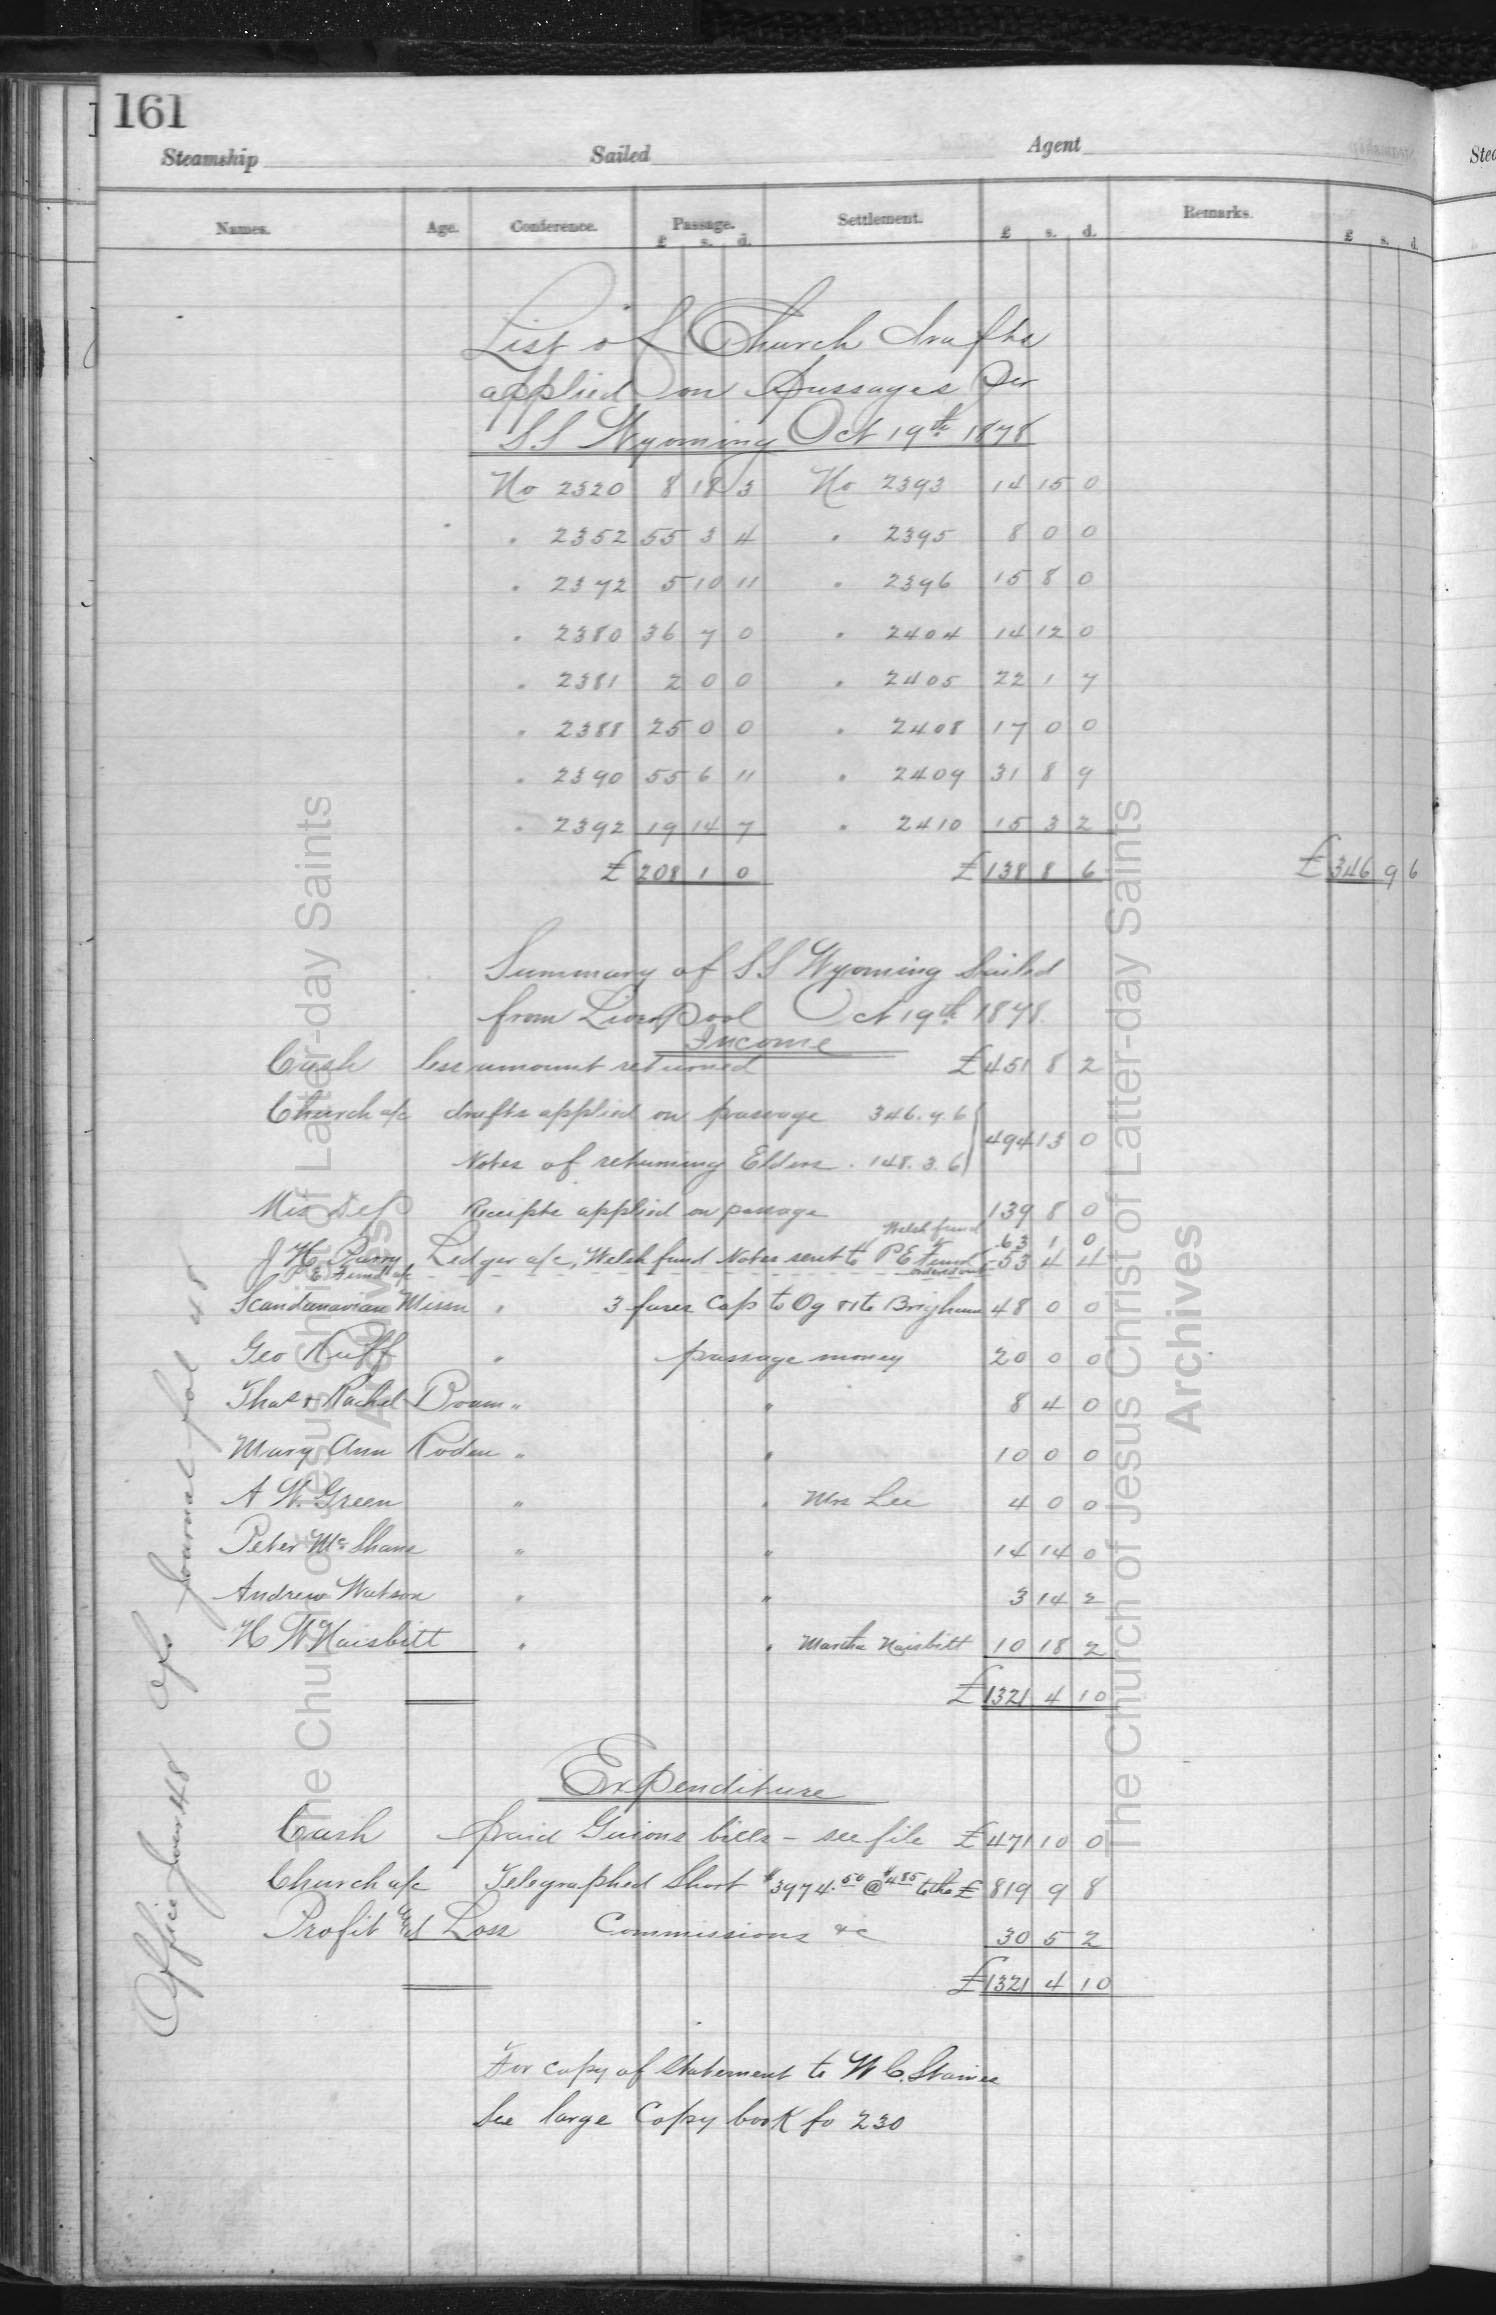 161
Steamship Sailed Agent
Names. Age. Conference. Passage. Settlement. £ s. d. Remarks.
£ s. d. £ s. d.
List of Church drafts
applied on Passages Per
SS Wyoming Oct 19th 1878
No 2320 8 18 3 No 2393 14 15 0
" 2352 55 3 4 " 2395 8 0 0
" 2372 5 10 11 " 2396 15 8 0
" 2380 36 7 0 " 2404 14 12 0
" 2381 2 0 0 " 2405 22 1 7
" 2388 25 0 0 " 2408 17 0 0
" 2390 55 6 11 " 2409 31 8 9
" 2392 19 14 7 " 2410 15 3 2
£ 208 1 0 £ 138 8 6 £ 346 9 6
Summary of SS Wyoming Sailed
from Liverpool Oct 19th 1878.
Income
Cash less amount returned £ 451 8 2
Church a/c drafts applied on passage 346.9.6
494 13 0
Notes of returning Elders. 148.3.6
Mis Dep Receipts applied on passage 139 8 0
Welsh fund 63 1 0
J H Parry Ledger a/c, Welsh fund Notes sent to P E Fund 53 4 4
P E Fund a/c ordered out
Scandinavian Missn " 3 fares Cap to Og & 1 to Brigham 48 0 0
Geo Ruff " passage money 20 0 0
Thos & Rachel Boam " " 8 4 0
Mary Ann Roden " " 10 0 0
A W. Green " " Mrs Lee 4 0 0
Peter McShane " " 14 14 0
Andrew Watson " " 3 14 2
H W Naisbitt " " Martha Naisbitt 10 18 2
£ 1321 4 10
Expenditure
Cash paid Guions bills - see file £ 471 10 0
Church a/c Telegraphed Short $3974.50 @ $4.85 to the £ 819 9 8
Profit and Loss Commissions &c 30 5 2
£ 1321 4 10
For copy of Statement to W C. Staines
See large Copy book fo 230
Journal fol 45
Office
The Church of Jesus Christ of Latter-day Saints
Archives
The Church of Jesus Christ of Latter-day Saints
Archives